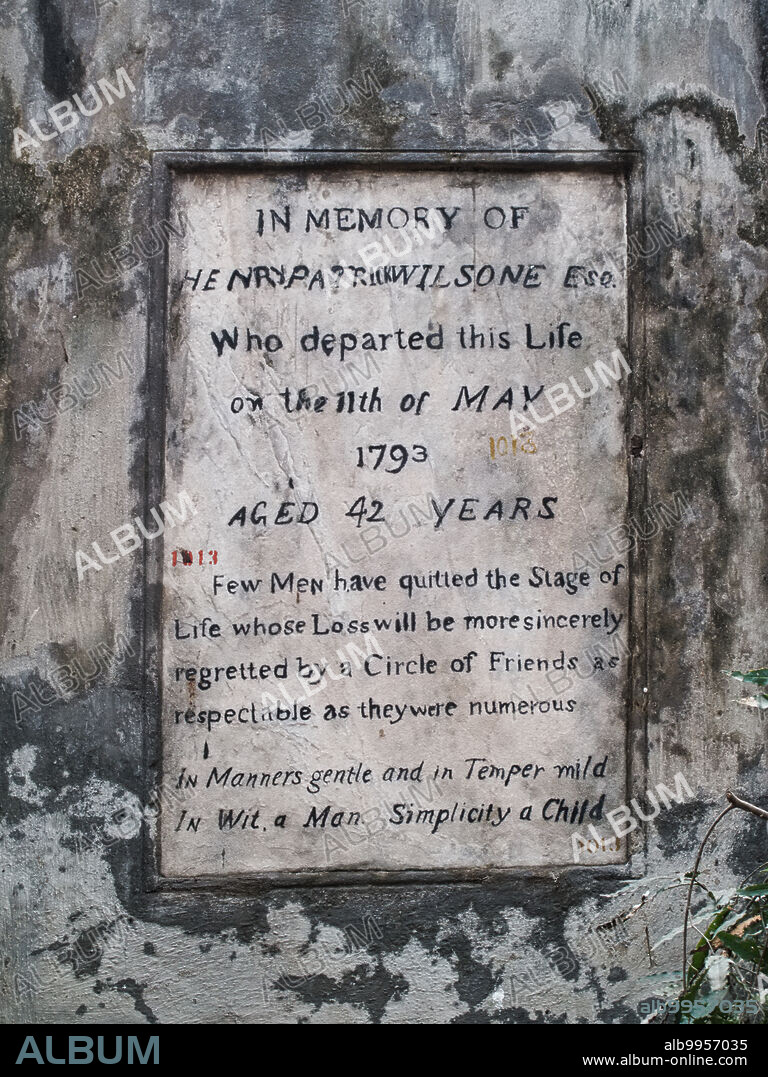 IN MEMORY OF
HENRY PATRICK WILSONE Esq.
Who departed this Life
on the 11th of MAY
1793 1013
AGED 42 YEARS
1013
Few Men have quitted the Stage of
Life whose Loss will be more sincerely
regretted by a Circle of Friends as
respectable as they were numerous
In Manners gentle and in Temper mild
In Wit, a Man Simplicity a Child
1013
ALBUM
alb9957035
ALBUM
alb9957035
www.album-online.com